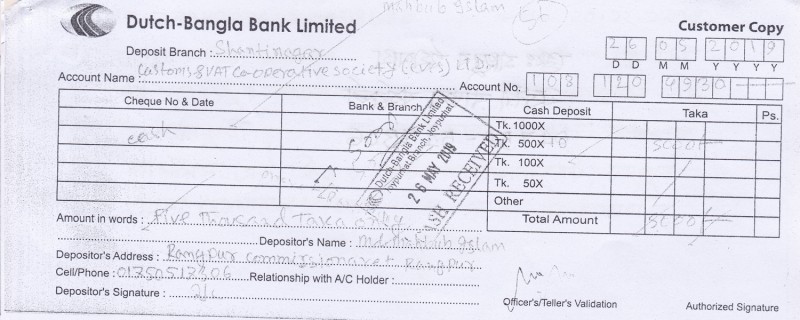 Dutch-Bangla Bank Limited
Customer Copy
Deposit Branch : Shantinagar
26 05 2019
D D M M Y Y Y Y
Customs & VAT Co-operative Society
Account Name :
Account No. 108 120 4930
Cheque No & Date Bank & Branch Cash Deposit Taka Ps.
Cash
Tk. 1000X
Tk. 500X 10 5000/-
Tk. 100X
Tk. 50X
Other
Total Amount 5000/-
Dutch-Bangla Bank Limited
26 MAY 2019
CASH RECEIVED
Amount in words : Five thousand taka only
Depositor's Name : Islam
Depositor's Address : Rangpur commissionarat Rangpur
Cell/Phone : Relationship with A/C Holder :
Depositor's Signature :
Officer's/Teller's Validation
Authorized Signature